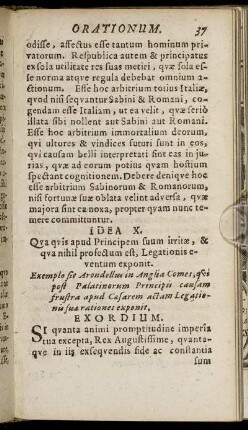 ORATIONUM. 37
odisse, affectus esse tantum hominum pri-
vatorum. Respublica autem & principatus
ex sola utilitate res suas metiri, qvæ sola es-
se norma atqve regula debebat omnium a-
ctionum. Esse hoc arbitrium totius Italiæ,
qvod nisi seqvantur Sabini & Romani, co-
gendam esse Italiam, ut ea velit, qvæ seriò
illata sibi nollent aut Sabini aut Romani.
Esse hoc arbitrium immortalium deorum,
qvi ultores & vindices suturi sunt in eos,
qvi causam belli interpretati sint eas in ju-
rias, qvæ ad eorum potius qvam hostium
spectant cognitionem. Debere deniqve hoc
esse arbitrium Sabinorum & Romanorum,
nisi fortunæ suæ oblata velint adversa, qvæ
majora sint ea noxa, propter qvam nunc te-
mere committuntur.
IDEA X.
Qva qvis apud Principem suum irritæ, &
qva nihil profectum est, Legationis e-
ventum exponit.
Exemplo sit Arondellus in Anglia Comes, qvi
post Palatinorum Principis causam
frustra apud Cæsarem actam Legatio-
nis suæ rationes exponit.
EXORDIUM.
SI qvanta animi promptitudine imperia
tua excepta, Rex Augustissime, qvanta-
qve in iis exseqvendis fide ac constantia
sum